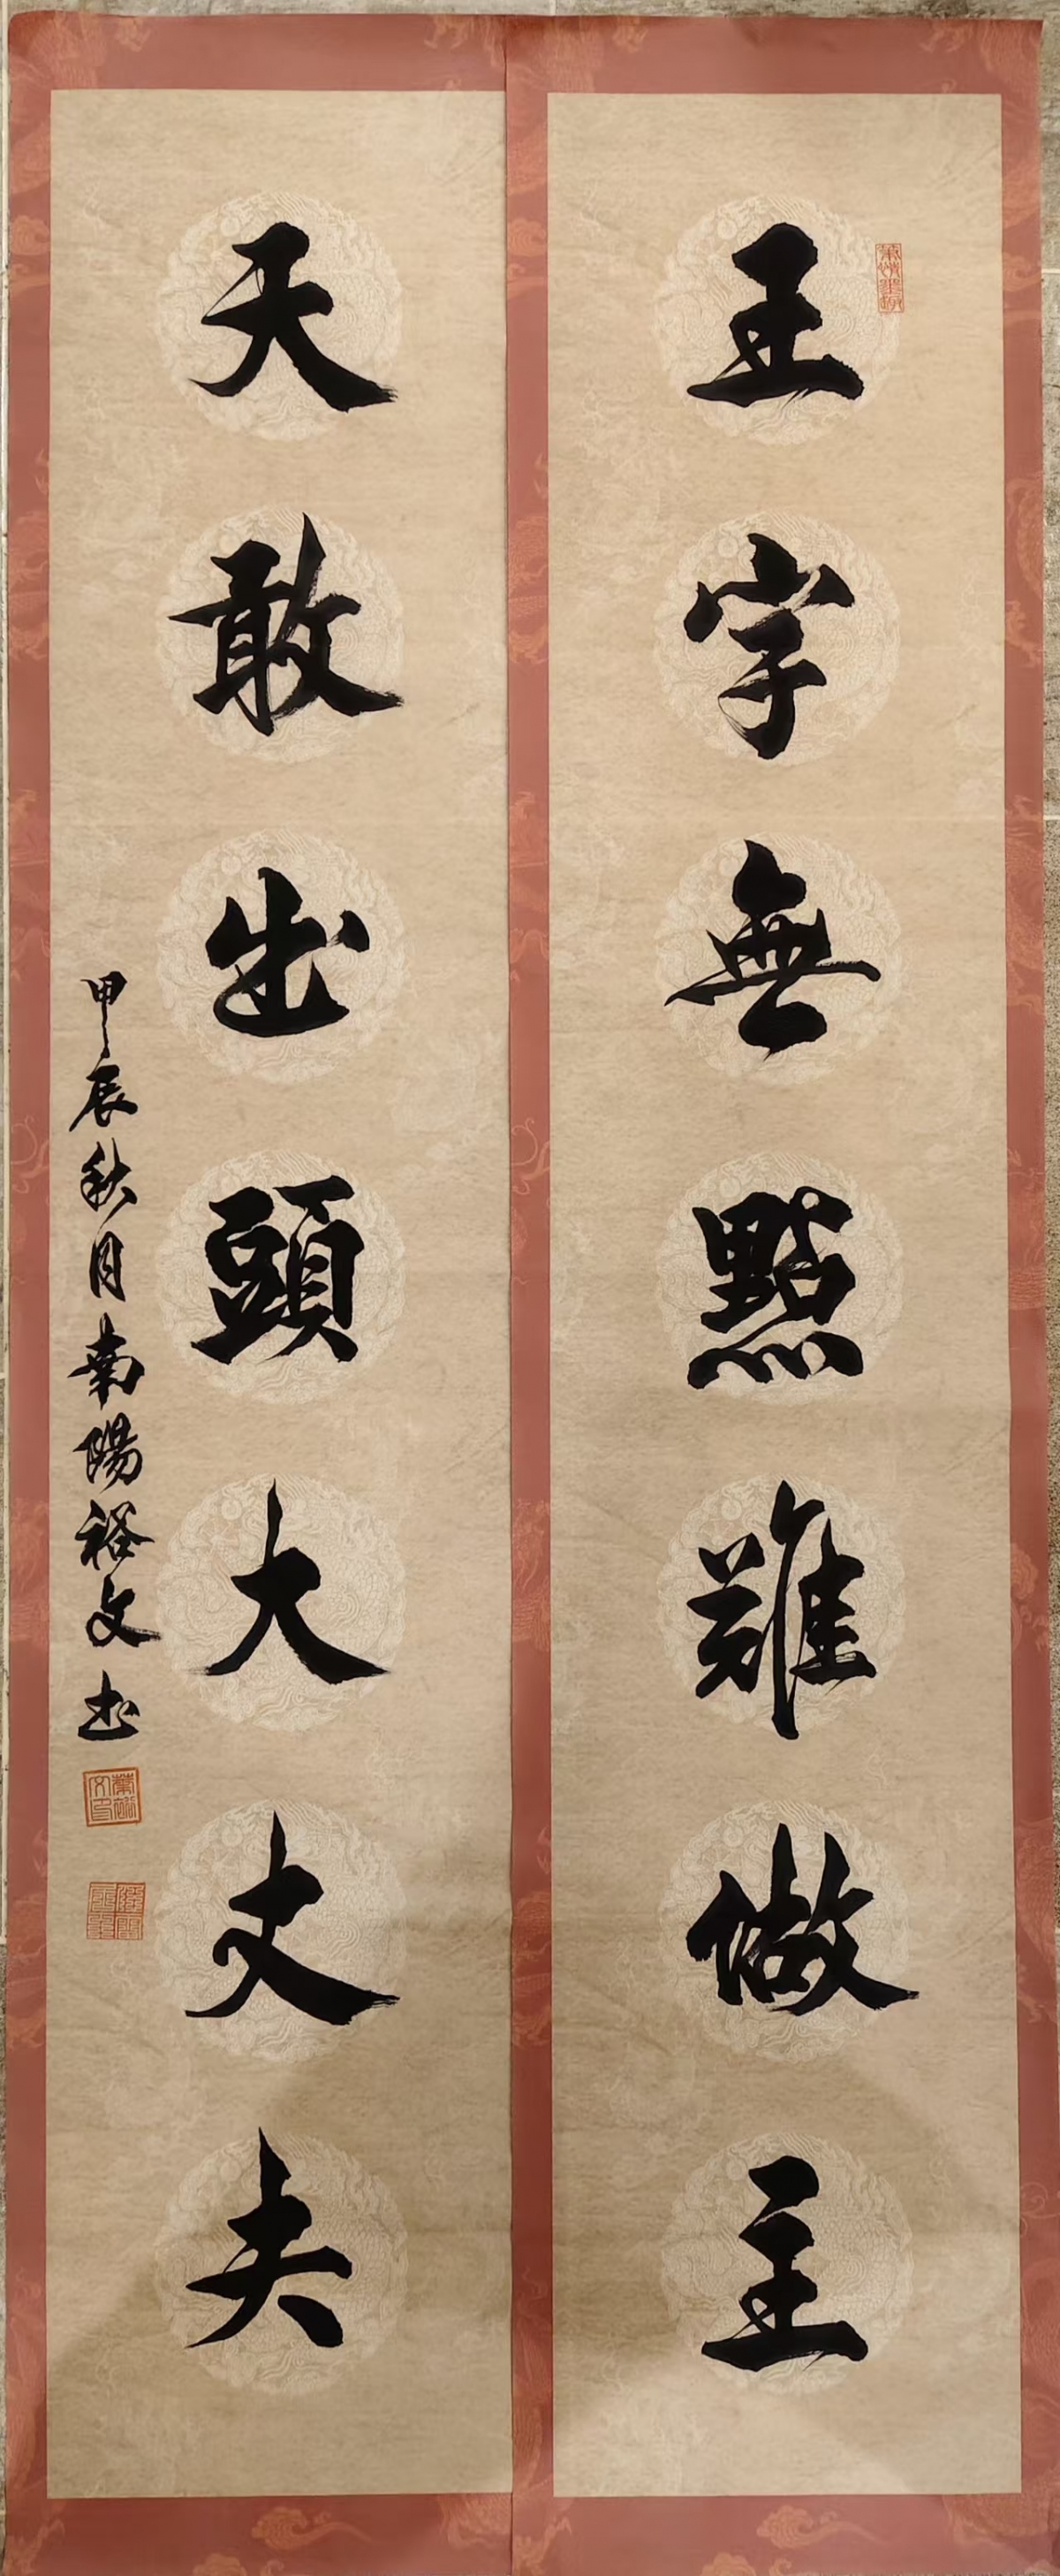 王字無點難做主
天敢出頭大丈夫
甲辰秋月南陽裕文书